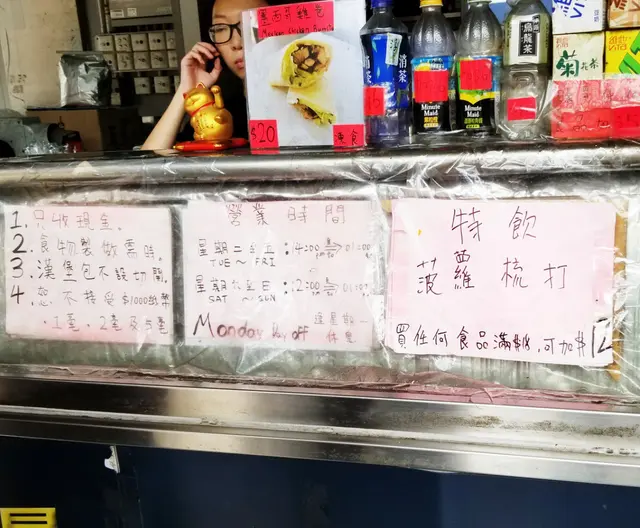 墨西哥雞包
Mexican Chicken Burrito
$20
晚食
消茶
Minute
Maid
Minute
Maid
烏龍茶
菊花茶
VITA
1. 只收現金.
2. 食物製做需時.
3. 漢堡包不設切開.
4. 恕不接受$1000纸幣
營業時間
星期二至五:14:00
TUE ~ FRI
星期六至日:12:00
SAT ~ SUN
Monday Day off
逢星期一
休息
特飲
菠蘿梳打
買任何食品滿$18,可加$12